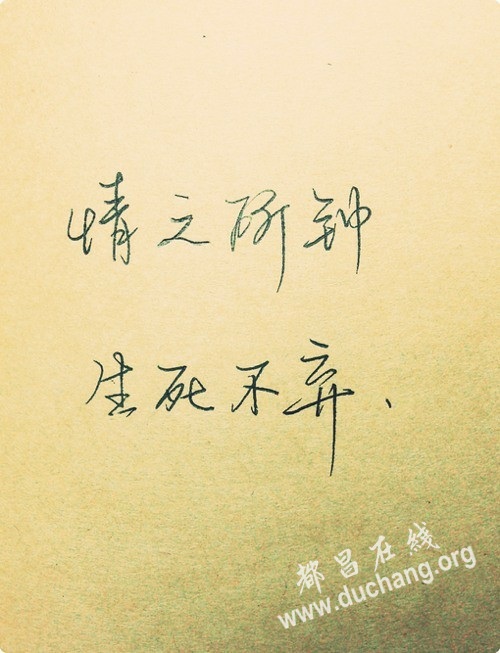 情之所钟
生死不弃、
都昌在线
www.duchang.org